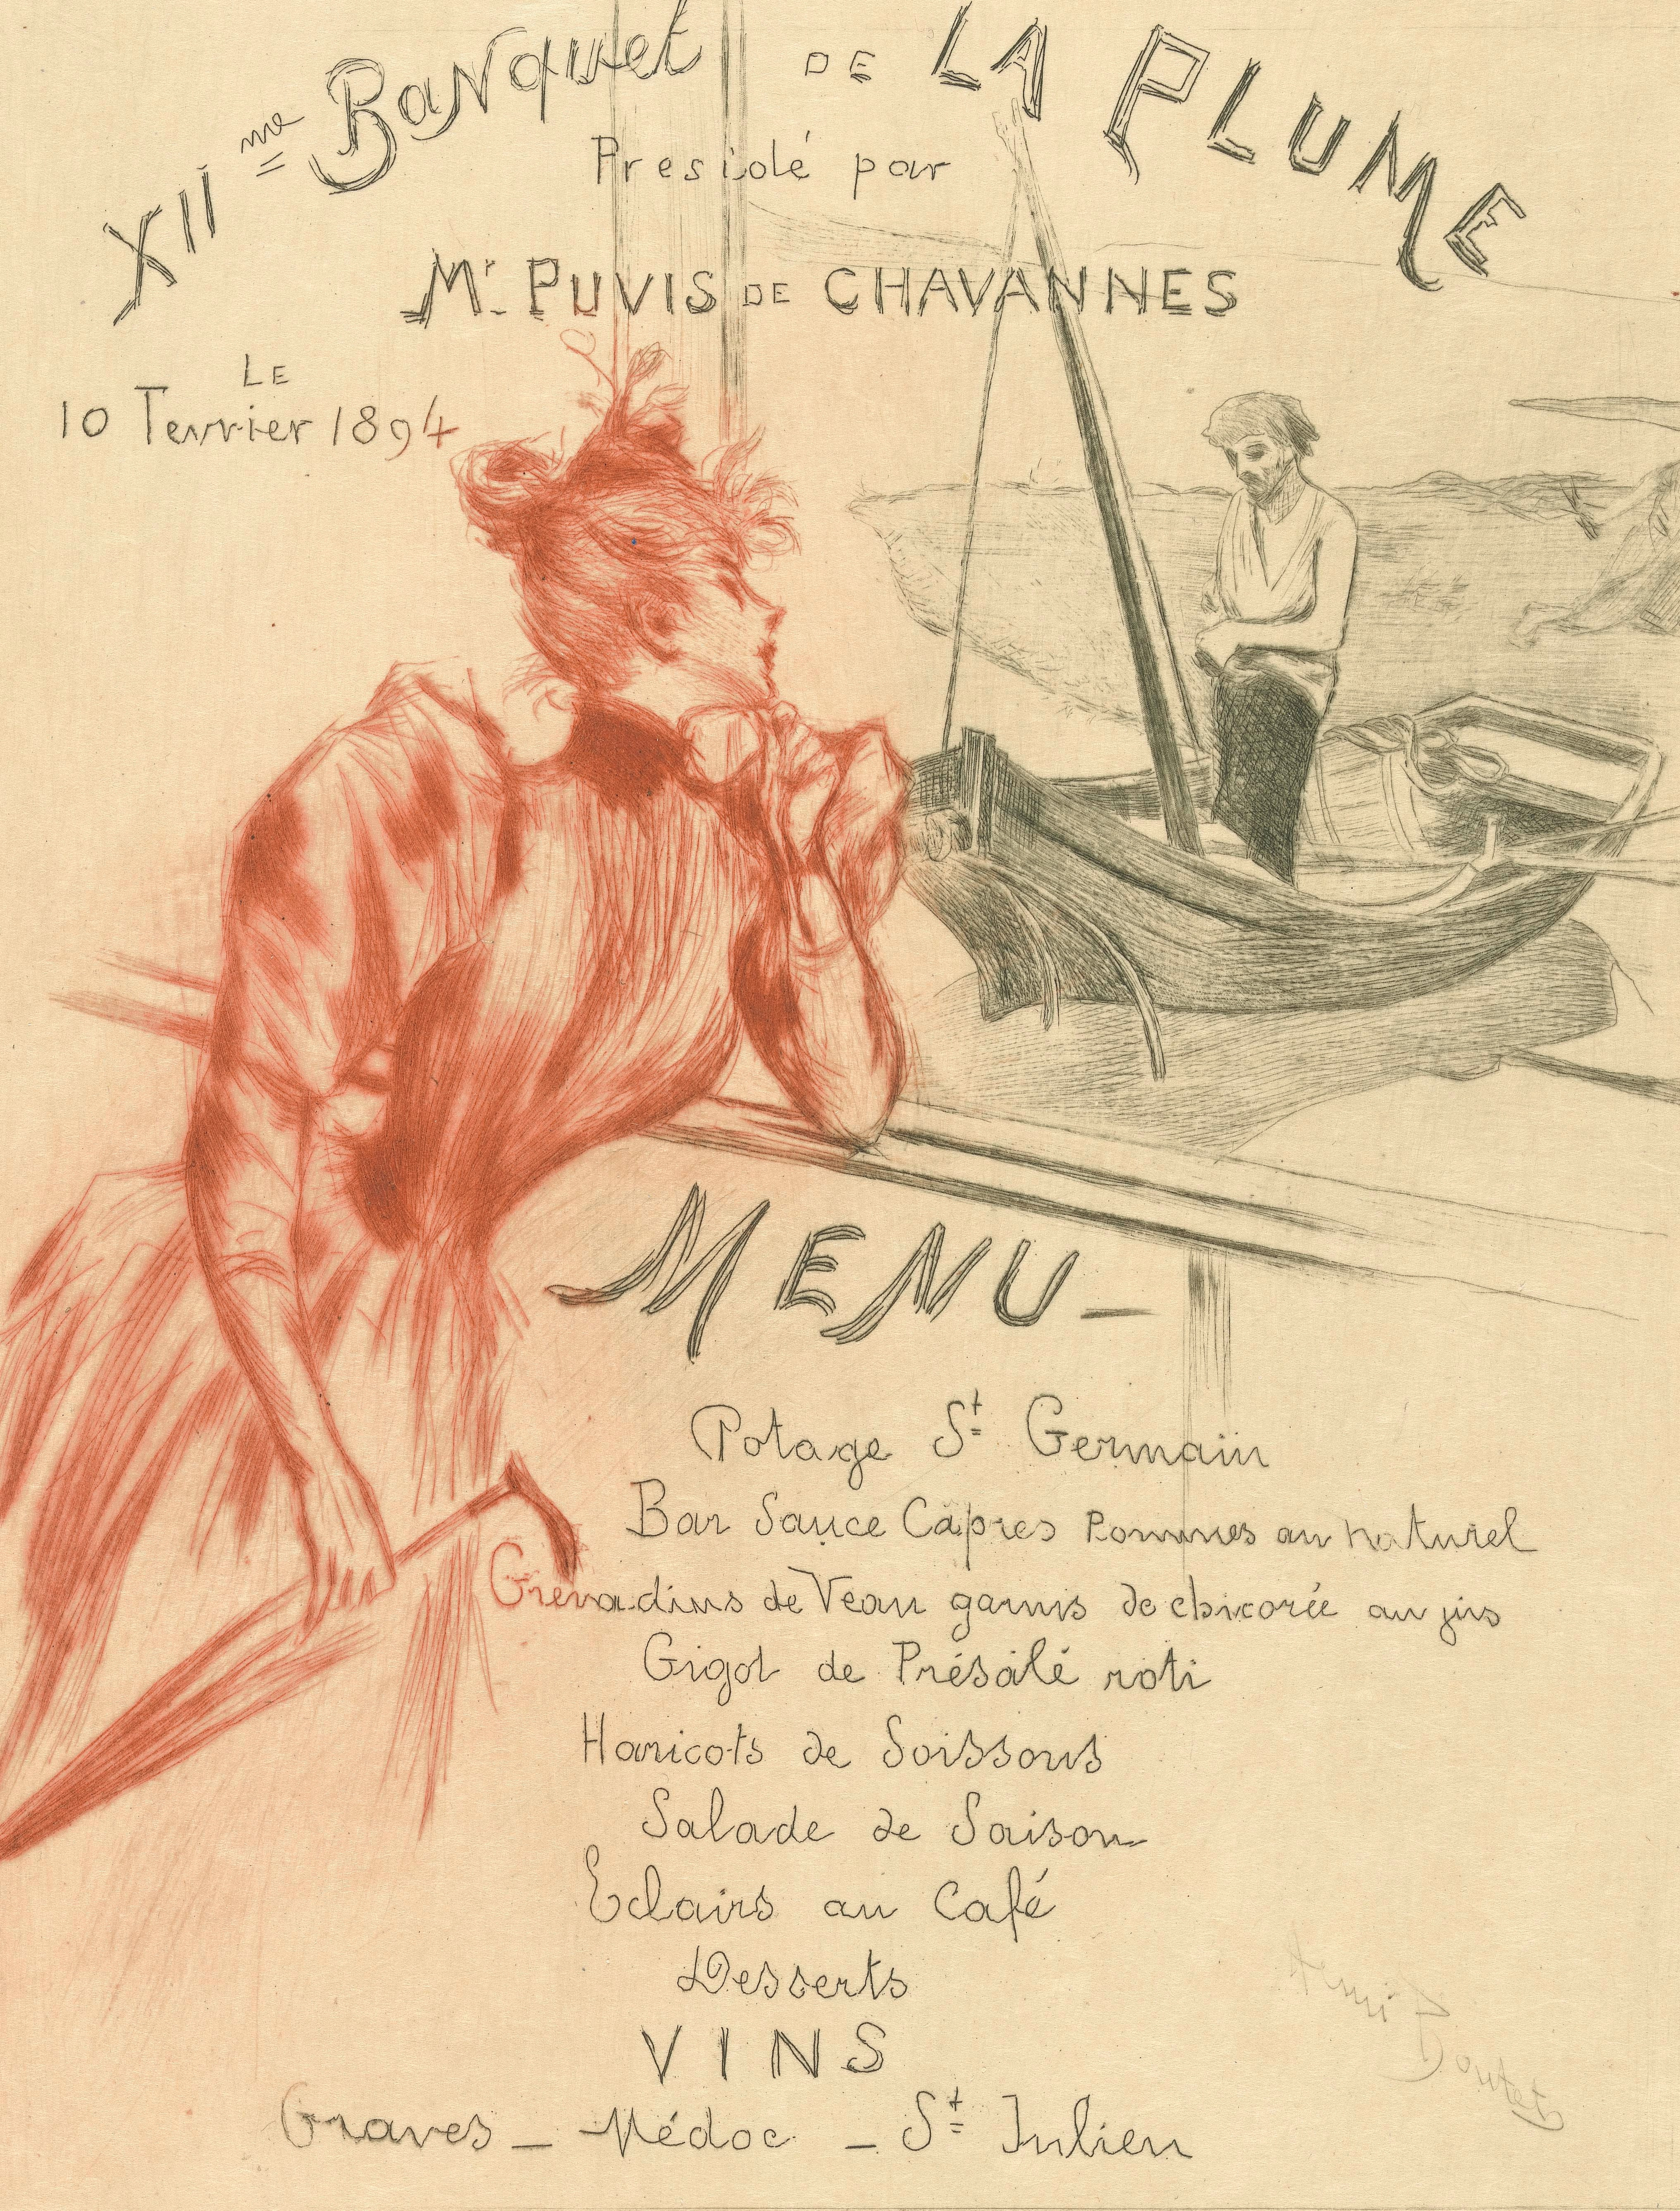 XII me Banquet DE LA PLUME
Presidé par
Mr. PUVIS DE CHAVANNES
LE
10 Fevrier 1894
MENU -
Potage St Germain
Bar Sauce Capres Pommes au naturel
Grenadins de Veau garnis de chicorée au jus
Gigot de Présalé roti
Haricots de Soissons
Salade de Saison
Eclairs au Café
Desserts
VINS
Graves - Médoc - St Julien
Henri Boutet